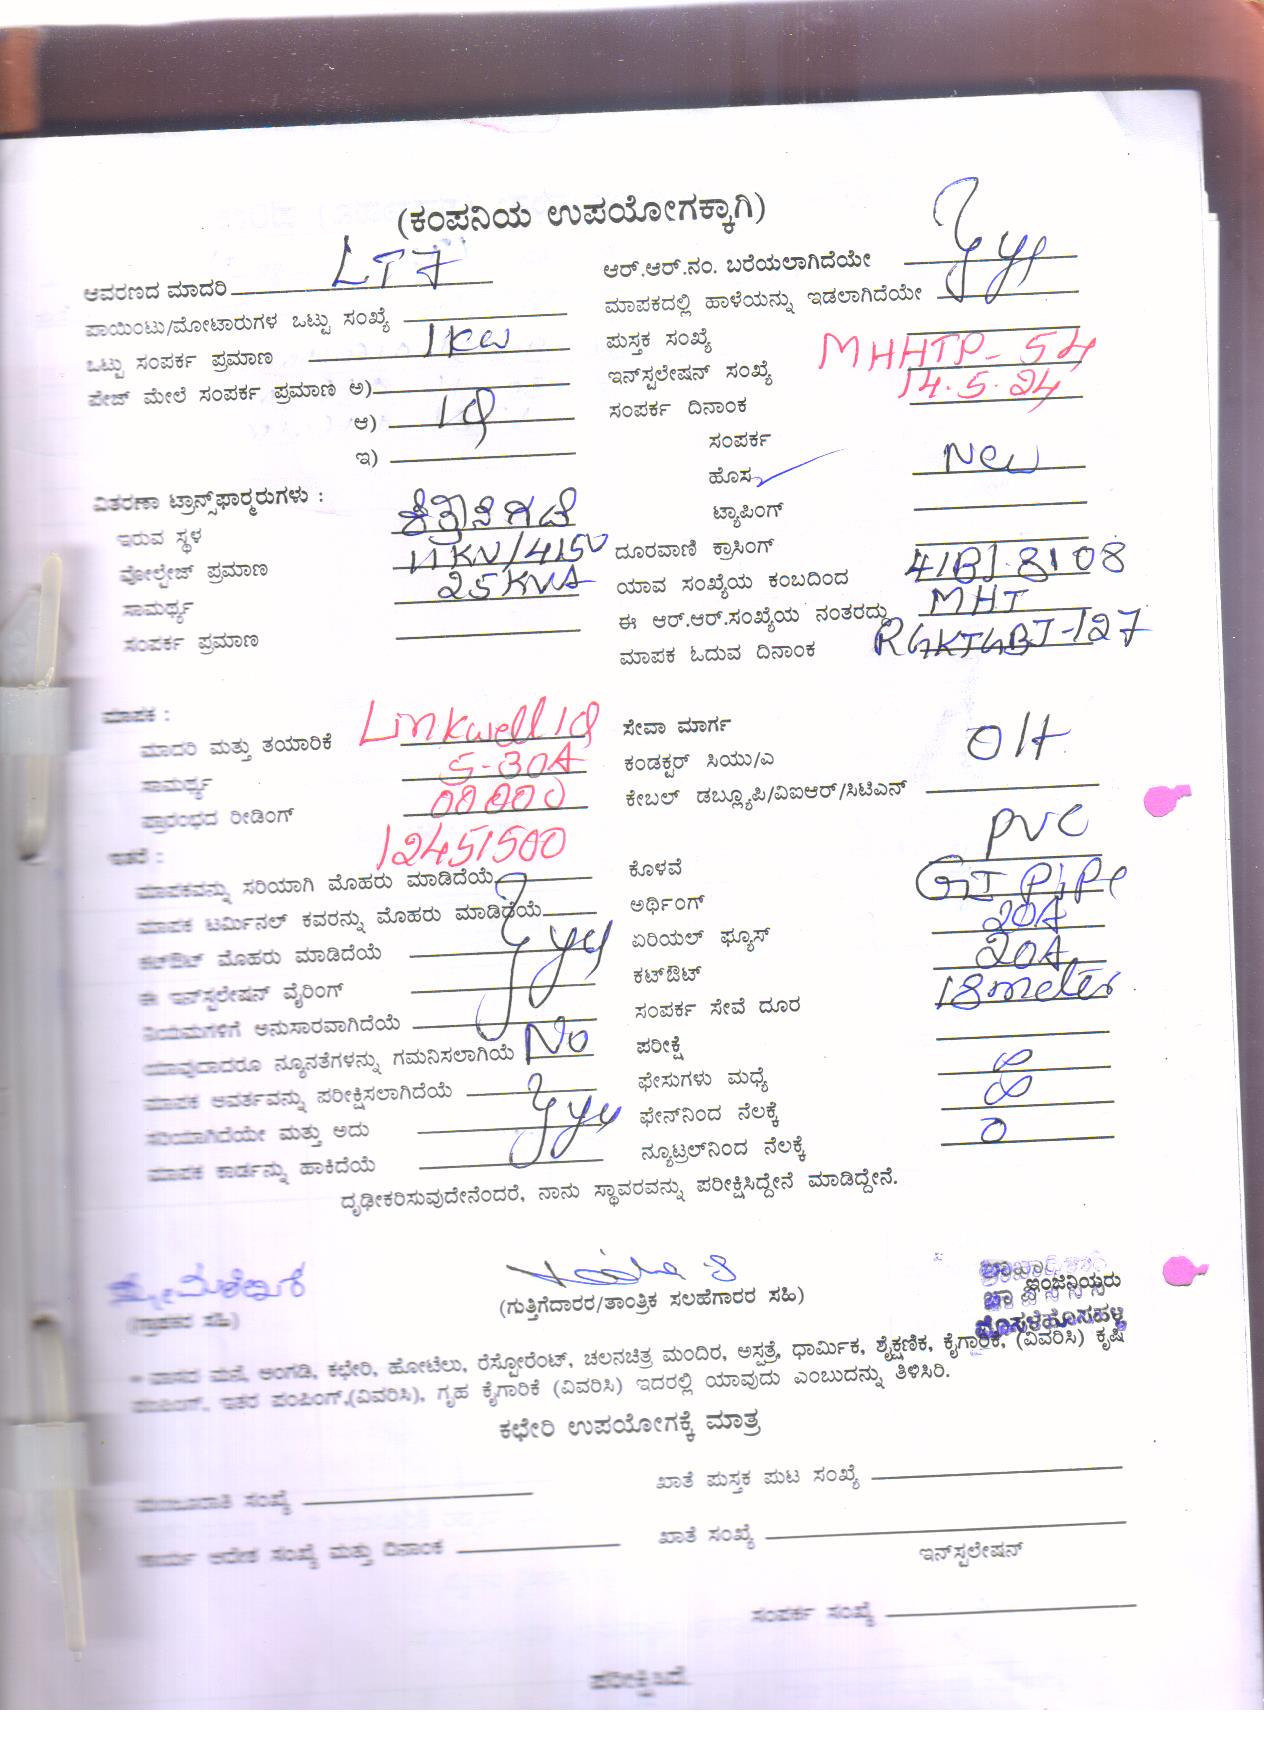 (ಕಂಪನಿಯ ಉಪಯೋಗಕ್ಕಾಗಿ)
ಆವರಣದ ಮಾದರಿ LT 7
ಪಾಯಿಂಟು/ಮೋಟಾರುಗಳ ಒಟ್ಟು ಸಂಖ್ಯೆ
ಒಟ್ಟು ಸಂಪರ್ಕ ಪ್ರಮಾಣ 1KW
ಪೇಜ್ ಮೇಲೆ ಸಂಪರ್ಕ ಪ್ರಮಾಣ ಅ)
ಆ) 1φ
ಇ)
ಆರ್.ಆರ್.ನಂ. ಬರೆಯಲಾಗಿದೆಯೇ
ಮಾಪಕದಲ್ಲಿ ಹಾಳೆಯನ್ನು ಇಡಲಾಗಿದೆಯೇ
ಪುಸ್ತಕ ಸಂಖ್ಯೆ
ಇನ್‌ಸ್ಟಲೇಷನ್ ಸಂಖ್ಯೆ MHHTP-54
ಸಂಪರ್ಕ ದಿನಾಂಕ 14.5.24
ಸಂಪರ್ಕ
ಹೊಸ New
ಟ್ಯಾಪಿಂಗ್
ವಿತರಣಾ ಟ್ರಾನ್ಸ್‌ಫಾರ್ಮರುಗಳು :
ಇರುವ ಸ್ಥಳ
ವೋಲ್ಟೇಜ್ ಪ್ರಮಾಣ 11KV/415V
ಸಾಮರ್ಥ್ಯ 25KVA
ಸಂಪರ್ಕ ಪ್ರಮಾಣ
ದೂರವಾಣಿ ಕ್ರಾಸಿಂಗ್
ಯಾವ ಸಂಖ್ಯೆಯ ಕಂಬದಿಂದ
ಈ ಆರ್.ಆರ್.ಸಂಖ್ಯೆಯ ನಂತರದ್ದು MHT
ಮಾಪಕ ಓದುವ ದಿನಾಂಕ
ಮಾಪಕ :
ಮಾದರಿ ಮತ್ತು ತಯಾರಿಕೆ Linkwell 1φ
ಸಾಮರ್ಥ್ಯ 5-30A
ಪ್ರಾರಂಭದ ರೀಡಿಂಗ್ 00000
12451500
ಸೇವಾ ಮಾರ್ಗ
ಕಂಡಕ್ಟರ್ ಸಿಯು/ಎ O/H
ಕೇಬಲ್ ಡಬ್ಲ್ಯೂಪಿ/ವಿಐಆರ್/ಸಿಟಿಎಸ್
ಇತರೆ :
ಮಾಪಕವನ್ನು ಸರಿಯಾಗಿ ಮೊಹರು ಮಾಡಿದೆಯೆ
ಮಾಪಕ ಟರ್ಮಿನಲ್ ಕವರನ್ನು ಮೊಹರು ಮಾಡಿದೆಯೆ
ಕಟ್‌ಔಟ್ ಮೊಹರು ಮಾಡಿದೆಯೆ
ಈ ಇನ್‌ಸ್ಟಲೇಷನ್ ವೈರಿಂಗ್
ನಿಯಮಗಳಿಗೆ ಅನುಸಾರವಾಗಿದೆಯೆ
ಯಾವುದಾದರೂ ನ್ಯೂನತೆಗಳನ್ನು ಗಮನಿಸಲಾಗಿಯೆ No
ಮಾಪಕ ಅವರ್ತವನ್ನು ಪರೀಕ್ಷಿಸಲಾಗಿದೆಯೆ
ಸರಿಯಾಗಿದೆಯೇ ಮತ್ತು ಅದು
ಮಾಪಕ ಕಾರ್ಡನ್ನು ಹಾಕಿದೆಯೆ
ಕೊಳವೆ PVC
ಅರ್ಥಿಂಗ್ GI Pipe
ಏರಿಯಲ್ ಫ್ಯೂಸ್ 20A
ಕಟ್‌ಔಟ್ 20A
ಸಂಪರ್ಕ ಸೇವೆ ದೂರ 18 meter
ಪರೀಕ್ಷೆ
ಫೇಸುಗಳು ಮಧ್ಯೆ ∞
ಫೇಸ್‌ನಿಂದ ನೆಲಕ್ಕೆ ∞
ನ್ಯೂಟ್ರಲ್‌ನಿಂದ ನೆಲಕ್ಕೆ 0
ದೃಢೀಕರಿಸುವುದೇನೆಂದರೆ, ನಾನು ಸ್ಥಾವರವನ್ನು ಪರೀಕ್ಷಿಸಿದ್ದೇನೆ ಮಾಡಿದ್ದೇನೆ.
(ಗ್ರಾಹಕರ ಸಹಿ)
(ಗುತ್ತಿಗೆದಾರರ/ತಾಂತ್ರಿಕ ಸಲಹೆಗಾರರ ಸಹಿ)
ಇಂಜಿನಿಯರು
ವಾಸದ ಮನೆ, ಅಂಗಡಿ, ಕಛೇರಿ, ಹೋಟೆಲು, ರೆಸ್ಟೋರೆಂಟ್, ಚಲನಚಿತ್ರ ಮಂದಿರ, ಆಸ್ಪತ್ರೆ, ಧಾರ್ಮಿಕ, ಶೈಕ್ಷಣಿಕ, ಕೈಗಾರಿಕೆ, (ವಿವರಿಸಿ) ಕೃಷಿ
ಪಂಪಿಂಗ್, ಇತರ ಪಂಪಿಂಗ್,(ವಿವರಿಸಿ), ಗೃಹ ಕೈಗಾರಿಕೆ (ವಿವರಿಸಿ) ಇದರಲ್ಲಿ ಯಾವುದು ಎಂಬುದನ್ನು ತಿಳಿಸಿರಿ.
ಕಛೇರಿ ಉಪಯೋಗಕ್ಕೆ ಮಾತ್ರ
ಮಂಜೂರಾತಿ ಸಂಖ್ಯೆ
ಖಾತೆ ಪುಸ್ತಕ ಪುಟ ಸಂಖ್ಯೆ
ಕಾರ್ಯ ಆದೇಶ ಸಂಖ್ಯೆ ಮತ್ತು ದಿನಾಂಕ
ಖಾತೆ ಸಂಖ್ಯೆ
ಇನ್‌ಸ್ಟಲೇಷನ್
ಸಂಪರ್ಕ ಸಂಖ್ಯೆ
ಪರೀಕ್ಷಿಸಿದೆ.